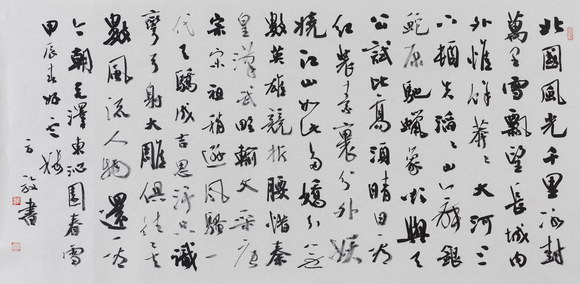 北國風光千里冰封
萬里雪飄望長城內
外惟餘莽々大河上
下頓失滔々山舞銀
蛇原馳蠟象欲與天
公試比高須晴日看
紅裝素裹分外妖
嬈江山如此多嬌引無
數英雄競折腰惜秦
皇漢武略輸文采唐
宗宋祖稍遜風騷一
代天驕成吉思汗只識
彎弓射大雕俱往矣
數風流人物還看
今朝毛澤東沁園春雪
甲辰春
方書